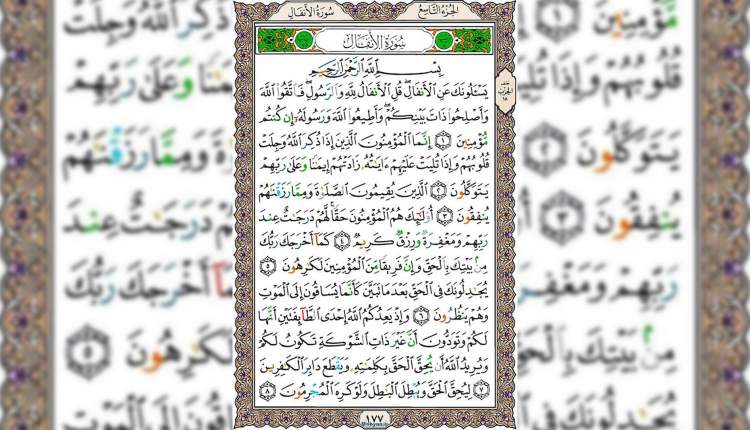 الجزء التاسع
سورة الأنفال
سُورَةُ الأَنفَال
بِسْمِ ٱللَّهِ ٱلرَّحْمَٰنِ ٱلرَّحِيمِ
يَسْـَٔلُونَكَ عَنِ ٱلْأَنفَالِ ۖ قُلِ ٱلْأَنفَالُ لِلَّهِ وَٱلرَّسُولِ ۖ فَٱتَّقُوا۟ ٱللَّهَ
وَأَصْلِحُوا۟ ذَاتَ بَيْنِكُمْ ۖ وَأَطِيعُوا۟ ٱللَّهَ وَرَسُولَهُۥٓ إِن كُنتُم
مُّؤْمِنِينَ ١ إِنَّمَا ٱلْمُؤْمِنُونَ ٱلَّذِينَ إِذَا ذُكِرَ ٱللَّهُ وَجِلَتْ
قُلُوبُهُمْ وَإِذَا تُلِيَتْ عَلَيْهِمْ ءَايَٰتُهُۥ زَادَتْهُمْ إِيمَٰنًا وَعَلَىٰ رَبِّهِمْ
يَتَوَكَّلُونَ ٢ ٱلَّذِينَ يُقِيمُونَ ٱلصَّلَوٰةَ وَمِمَّا رَزَقْنَٰهُمْ
يُنفِقُونَ ٣ أُو۟لَٰٓئِكَ هُمُ ٱلْمُؤْمِنُونَ حَقًّا ۚ لَّهُمْ دَرَجَٰتٌ عِندَ
رَبِّهِمْ وَمَغْفِرَةٌ وَرِزْقٌ كَرِيمٌ ٤ كَمَآ أَخْرَجَكَ رَبُّكَ
مِنۢ بَيْتِكَ بِٱلْحَقِّ وَإِنَّ فَرِيقًا مِّنَ ٱلْمُؤْمِنِينَ لَكَٰرِهُونَ ٥
يُجَٰدِلُونَكَ فِى ٱلْحَقِّ بَعْدَ مَا تَبَيَّنَ كَأَنَّمَا يُسَاقُونَ إِلَى ٱلْمَوْتِ
وَهُمْ يَنظُرُونَ ٦ وَإِذْ يَعِدُكُمُ ٱللَّهُ إِحْدَى ٱلطَّآئِفَتَيْنِ أَنَّهَا
لَكُمْ وَتَوَدُّونَ أَنَّ غَيْرَ ذَاتِ ٱلشَّوْكَةِ تَكُونُ لَكُمْ
وَيُرِيدُ ٱللَّهُ أَن يُحِقَّ ٱلْحَقَّ بِكَلِمَٰتِهِۦ وَيَقْطَعَ دَابِرَ ٱلْكَٰفِرِينَ
٧ لِيُحِقَّ ٱلْحَقَّ وَيُبْطِلَ ٱلْبَٰطِلَ وَلَوْ كَرِهَ ٱلْمُجْرِمُونَ ٨
١٧٧